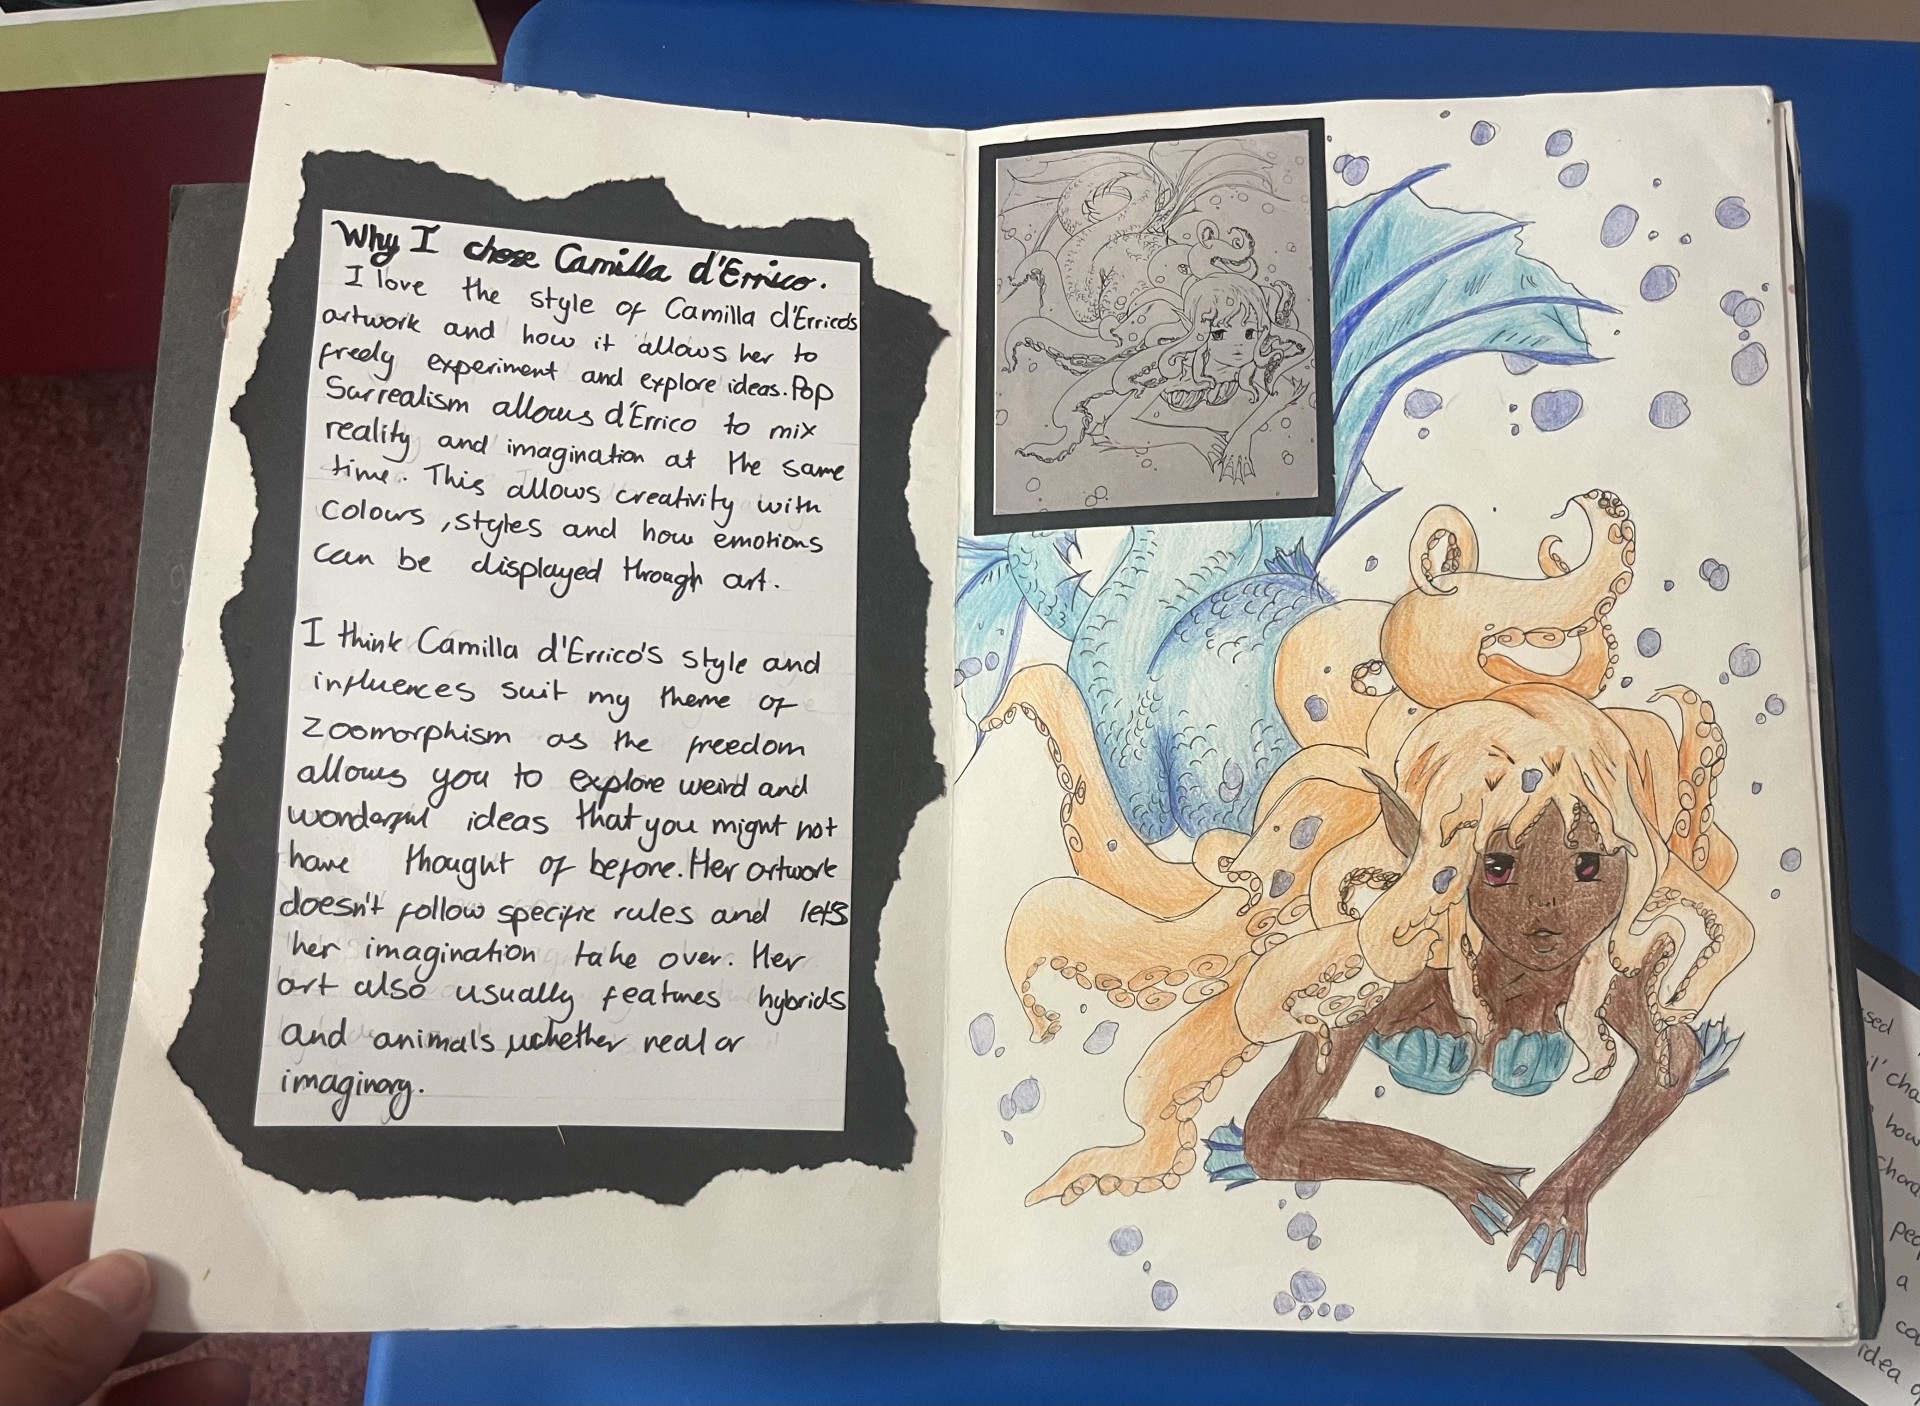 Why I chose Camilla d'Errico.
I love the style of Camilla d'Errico's
artwork and how it allows her to
freely experiment and explore ideas. Pop
Surrealism allows d'Errico to mix
reality and imagination at the same
time. This allows creativity with
colours, styles and how emotions
can be displayed through art.
I think Camilla d'Errico's style and
influences suit my theme of
zoomorphism as the freedom
allows you to explore weird and
wonderful ideas that you might not
have thought of before. Her artwork
doesn't follow specific rules and let's
her imagination take over. Her
art also usually features hybrids
and animals, whether real or
imaginary.
how
a
idea